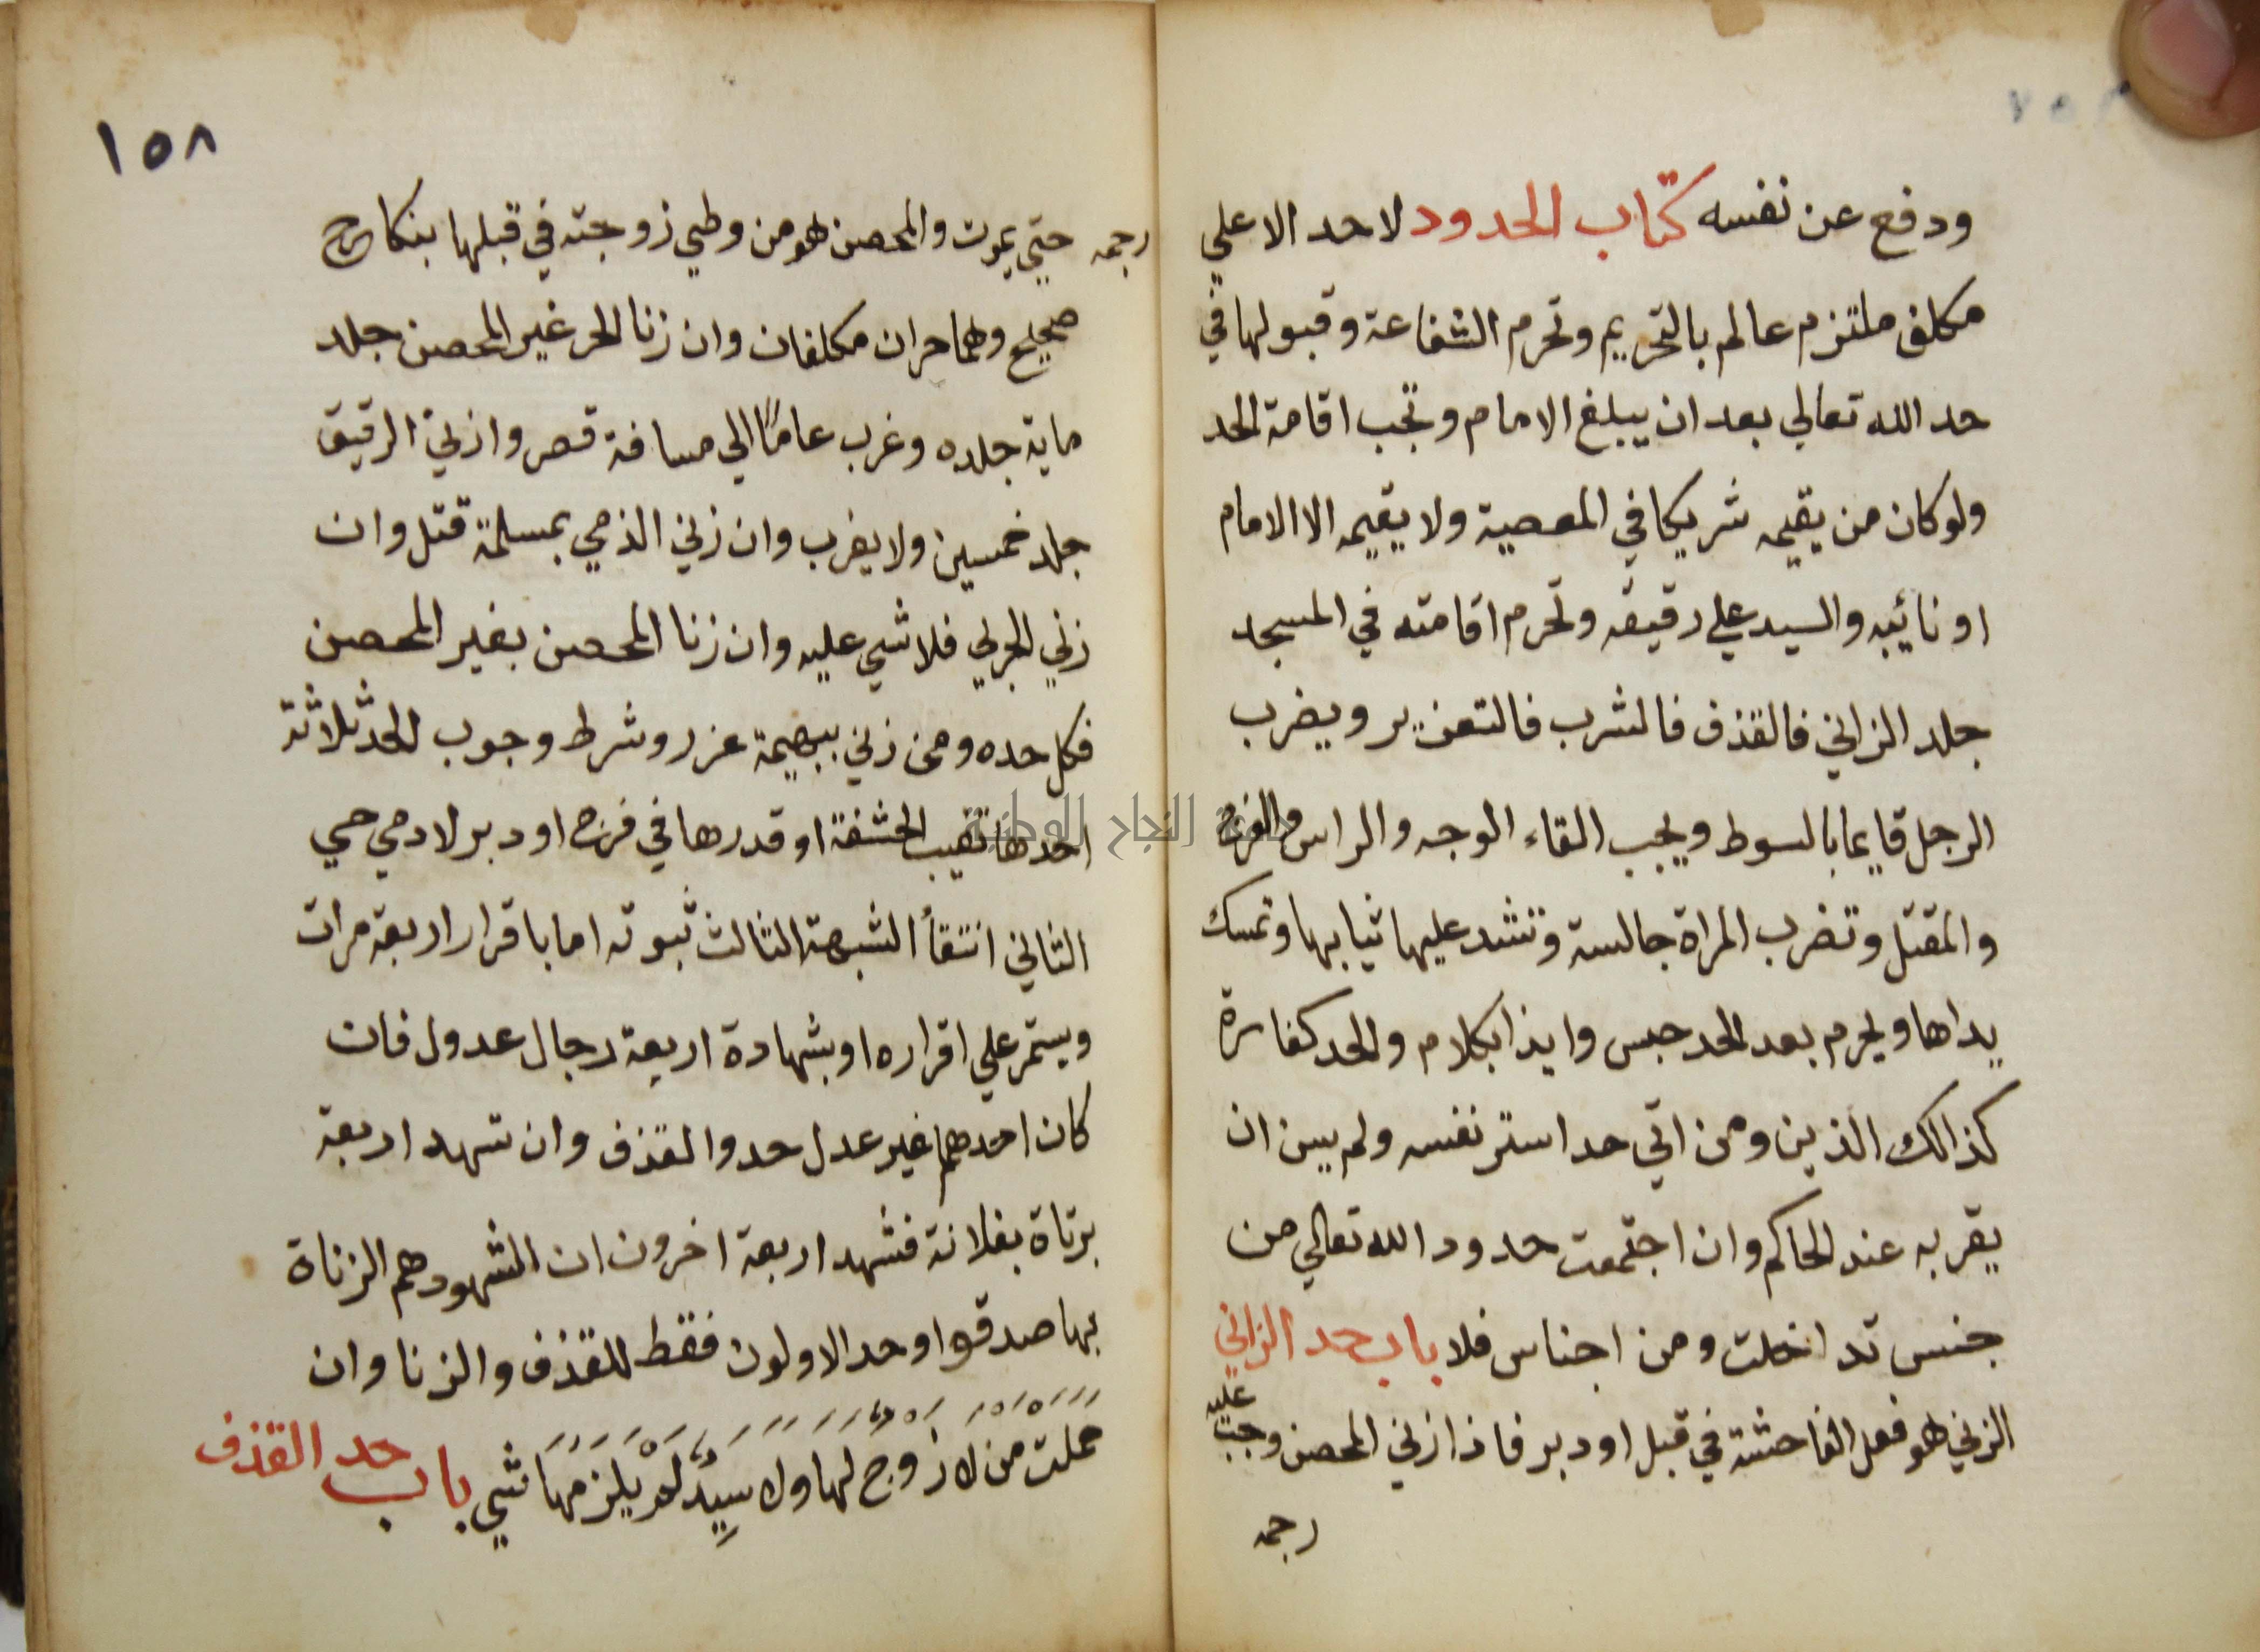 ودفع عن نفسه كتاب الحدود لا حد الا علي
مكلف ملتزم عالم بالتحريم وتحرم الشفاعة وقبولها في
حد الله تعالي بعد ان يبلغ الامام وتجب اقامة الحد
ولو كان من يقيمه شريكا في المعصية ولا يقيمه الا الامام
او نائيبه والسيد علي رقيقه وتحرم اقامته في المسجد
جلد الزاني فالقذف فالشرب فالتعزير ويضرب
الرجل قايما بالسوط ويجب القاء الوجه والراس والفرج
والمقتل وتضرب المراة جالسة وتشد عليها ثيابها وتمسك
يداها ويحرم بعد الحد حبس وايذا بكلام والحد كفارة
كذالك الذين ومن اتي حدا ستر نفسه ولم يسن ان
يقر به عند الحاكم وان اجتمعت حدود الله تعالي من
جنس تداخلت ومن اجناس فلا باب حد الزاني
الزني هو فعل الفاحشة في قبل او دبر فاذا زني المحصن وجب عليه
رجمه
١٥٨
رجمه حتي يموت والمحصن هو من وطي زوجته في قبلها بنكاح
صحيح وهما حران مكلفان وان زنا الحر غير المحصن جلد
ماية جلده وغرب عاما الي مسافة قصر وان زني الرقيق
جلد خمسين ولا يغرب وان زني الذمي بمسلمة قتل وان
زني الحربي فلا شي عليه وان زنا المحصن بغير المحصن
فكل حده ومن زني ببهيمة عزر وشرط وجوب الحد ثلاثة
احدها تغيب الحشفة او قدرها في فرج او دبر لادمي حي
الثاني انتقأ الشبهة الثالث ثبوته اما باقرار اربعة مرات
ويستمر علي اقراره او بشهادة اربعة رجال عدول فان
كان احدهم غير عدل حدوا لقذف وان شهد اربعة
بزناة بفلانة فشهد اربعة اخرون ان الشهود هم الزناة
بها صدقوا وحد الاولون فقط للقذف والزنا وان
حملت من لَا زَوْجٌ لها ولا سَيِدٌ لَمْ يَلْزَمْهَا شي باب حد القذف